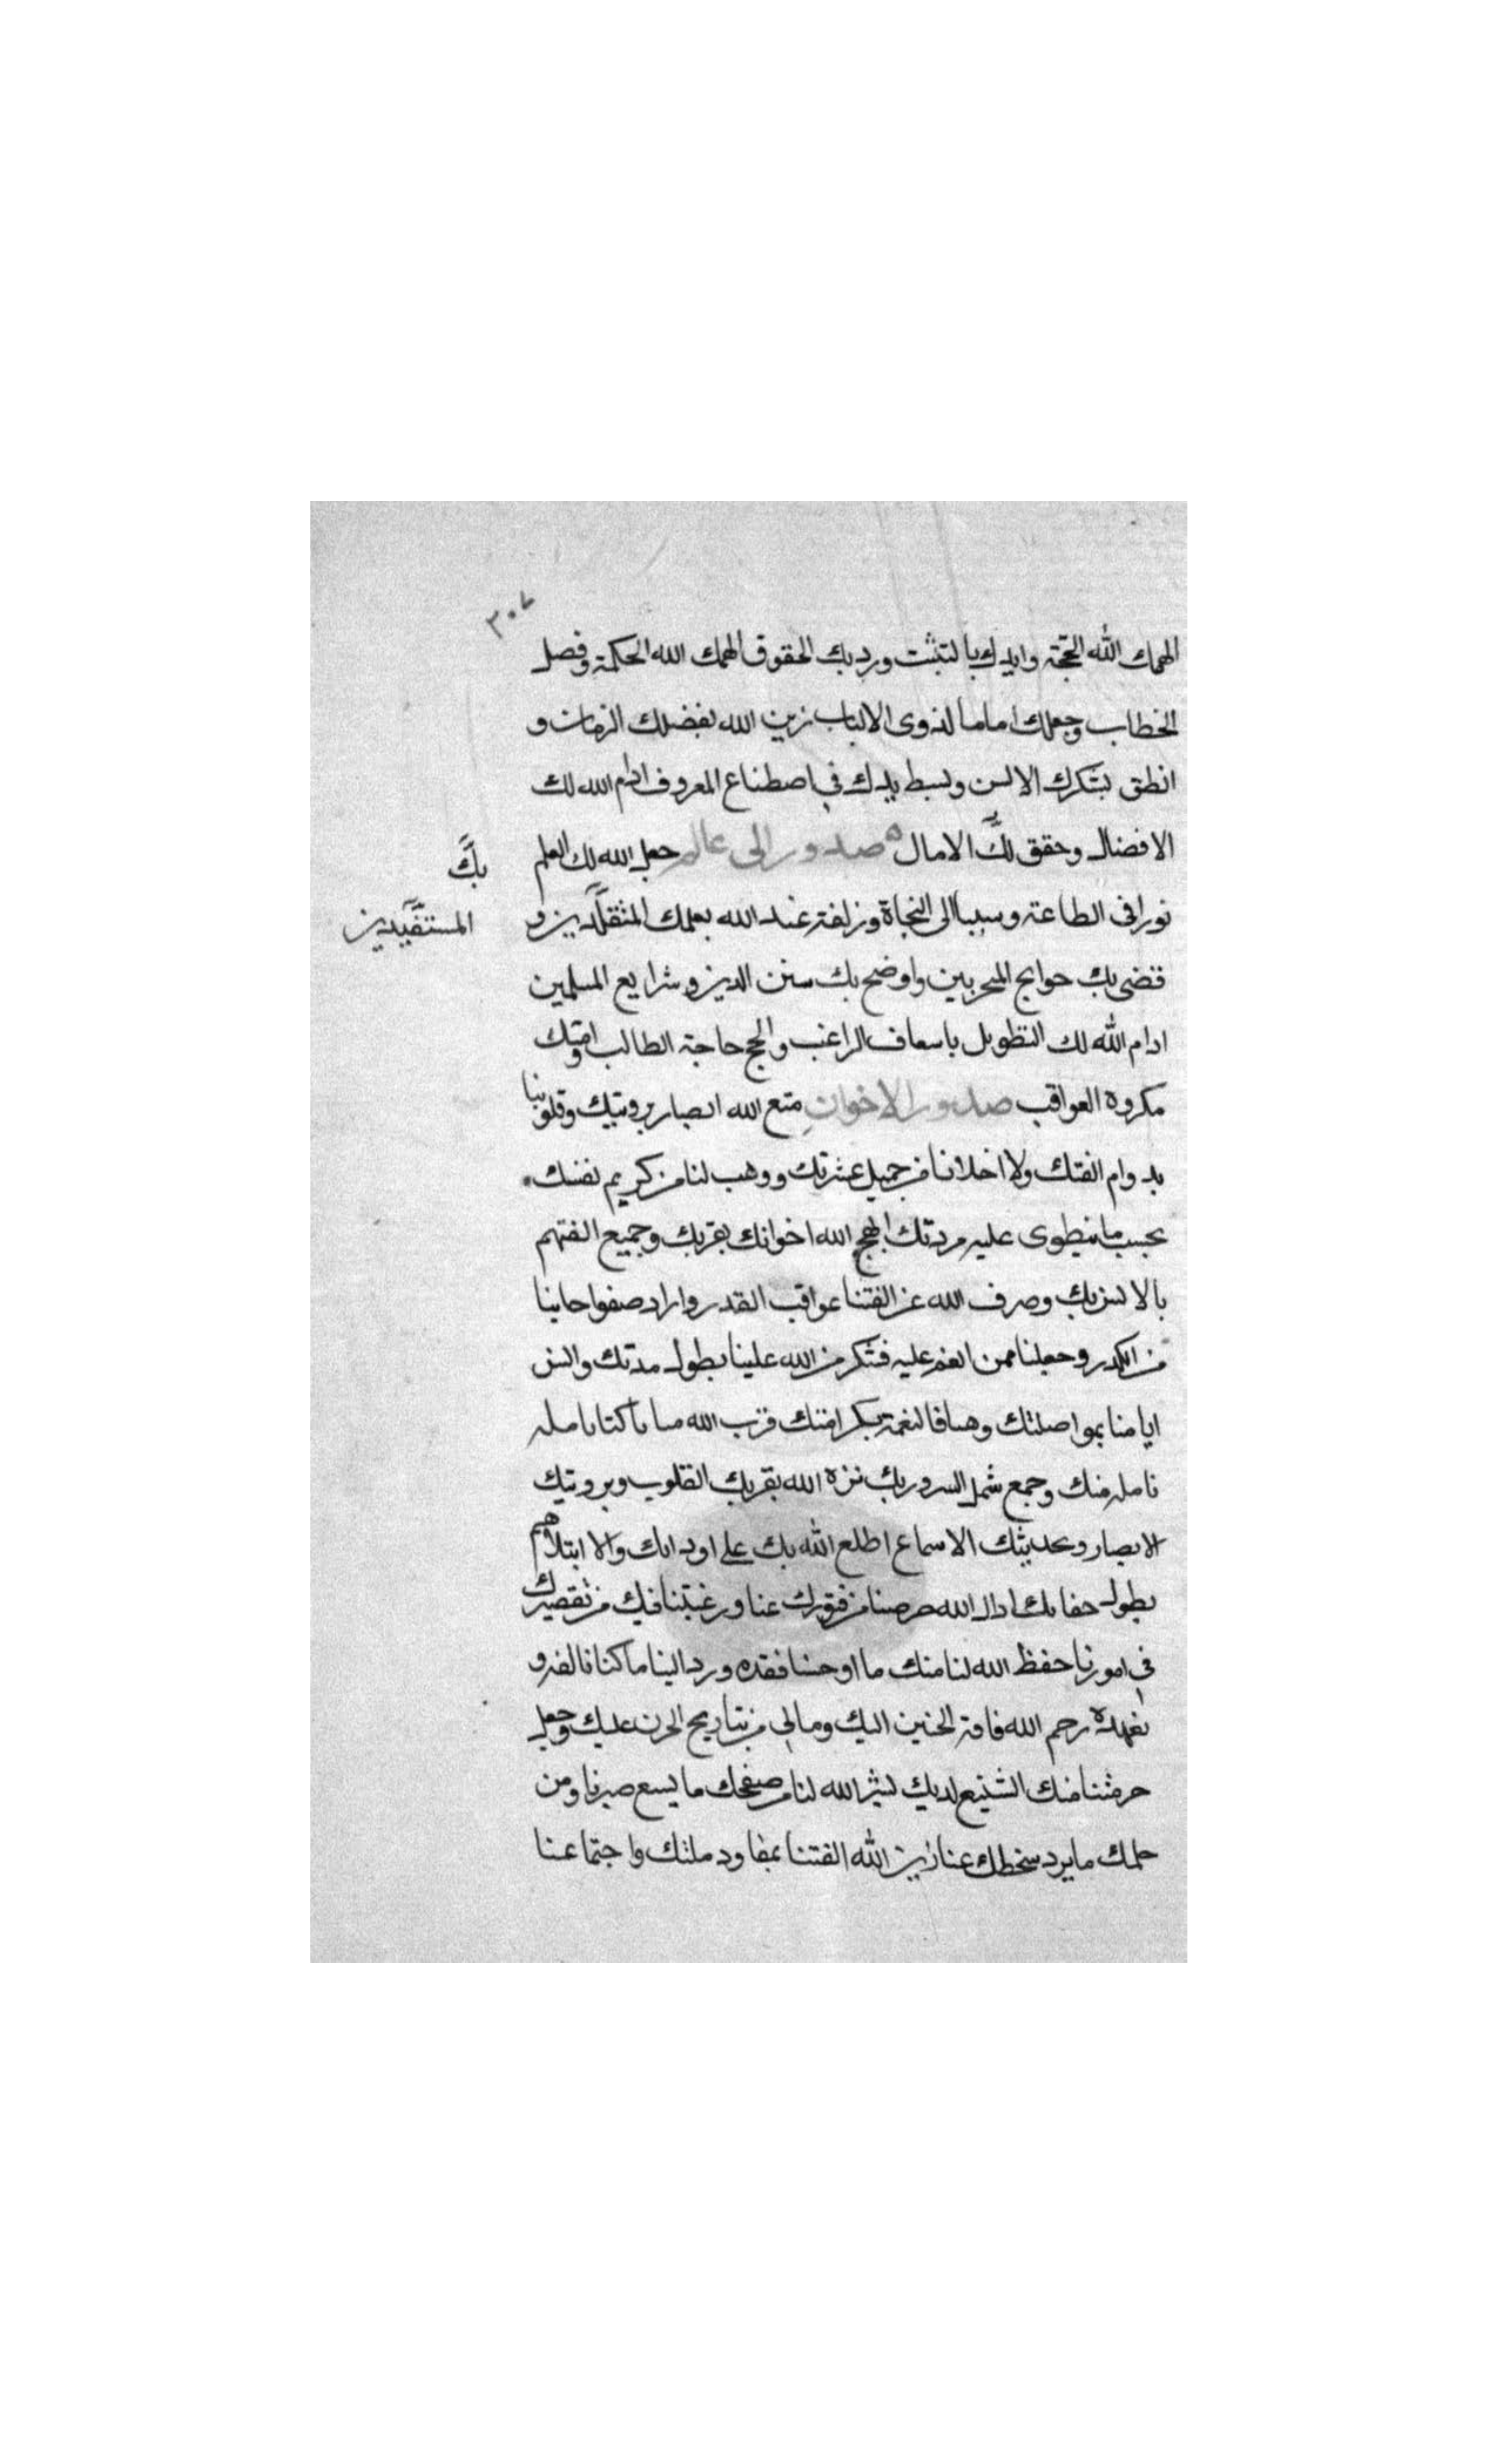 ٣٠٧
الهمك الله الحجة وايدك بالتثبت ورد بك الحقوق الهمك الله الحكمة وفصل
الخطاب وجعلك اماما لذوى الالباب زين الله بفضلك الزمان و
انطق بشكرك الالسن وبسط يدك في اصطناع المعروف ادام الله لك
الافضال وحقق لك الامال صدور الى عالم جعل الله لك العلم
بك
نورا في الطاعة وسببا الى النجاة وزلفة عند الله بعلمك المتقلدين و
المستفيدين
قضى بك حوايج المحربين واوضح بك سنن الدين وشرايع المسلمين
ادام الله لك التطويل باسعاف الراغب والحج حاجة الطالب وامنك
مكروه العواقب صدور الاخوان متع الله ابصار برويتك وقلوبنا
بدوام الفتك ولا اخلانا من جميل عشرتك ووهب لنا من كريم نفسك
بحسب ما ينطوى عليه مردتك ابهج الله اخوانك بقربك وجميع الفتهم
بالانس بك وصرف الله عن الفتنا عواقب القدر واراد صفو احاينا
من الكدر وجعلنا ممن انعم عليه فشكر من الله علينا بطول مدتك وانس
ايامنا بمواصلتك وهنانا النعمة بكرامتك قرب الله منا ما كنا نامله
نامله منك وجمع شمل السرور بك نزه الله بقربك القلوب وبرويتك
الابصار وبحديثك الاسماع اطلع الله بك على اودائك والا ابتلاهم
بطول جفائك ادال الله حرصنا من فتورك عنا ورغبتنا فيك من تقصيرك
في امورنا حفظ الله لنا منك ما اوحشنا فقده ورد الينا ما كنا نالفه و
نعهده رحم الله فاقة الحنين اليك ومالي من تباريح الحزن عليك وجعل
حرمتنا منك الشفيع لديك يسر الله لنا من صفحك ما يسع صبرنا ومن
حلمك ما يرد سخطك عنا زين الله الفتنا بمعاودة ملتك واجتماعنا